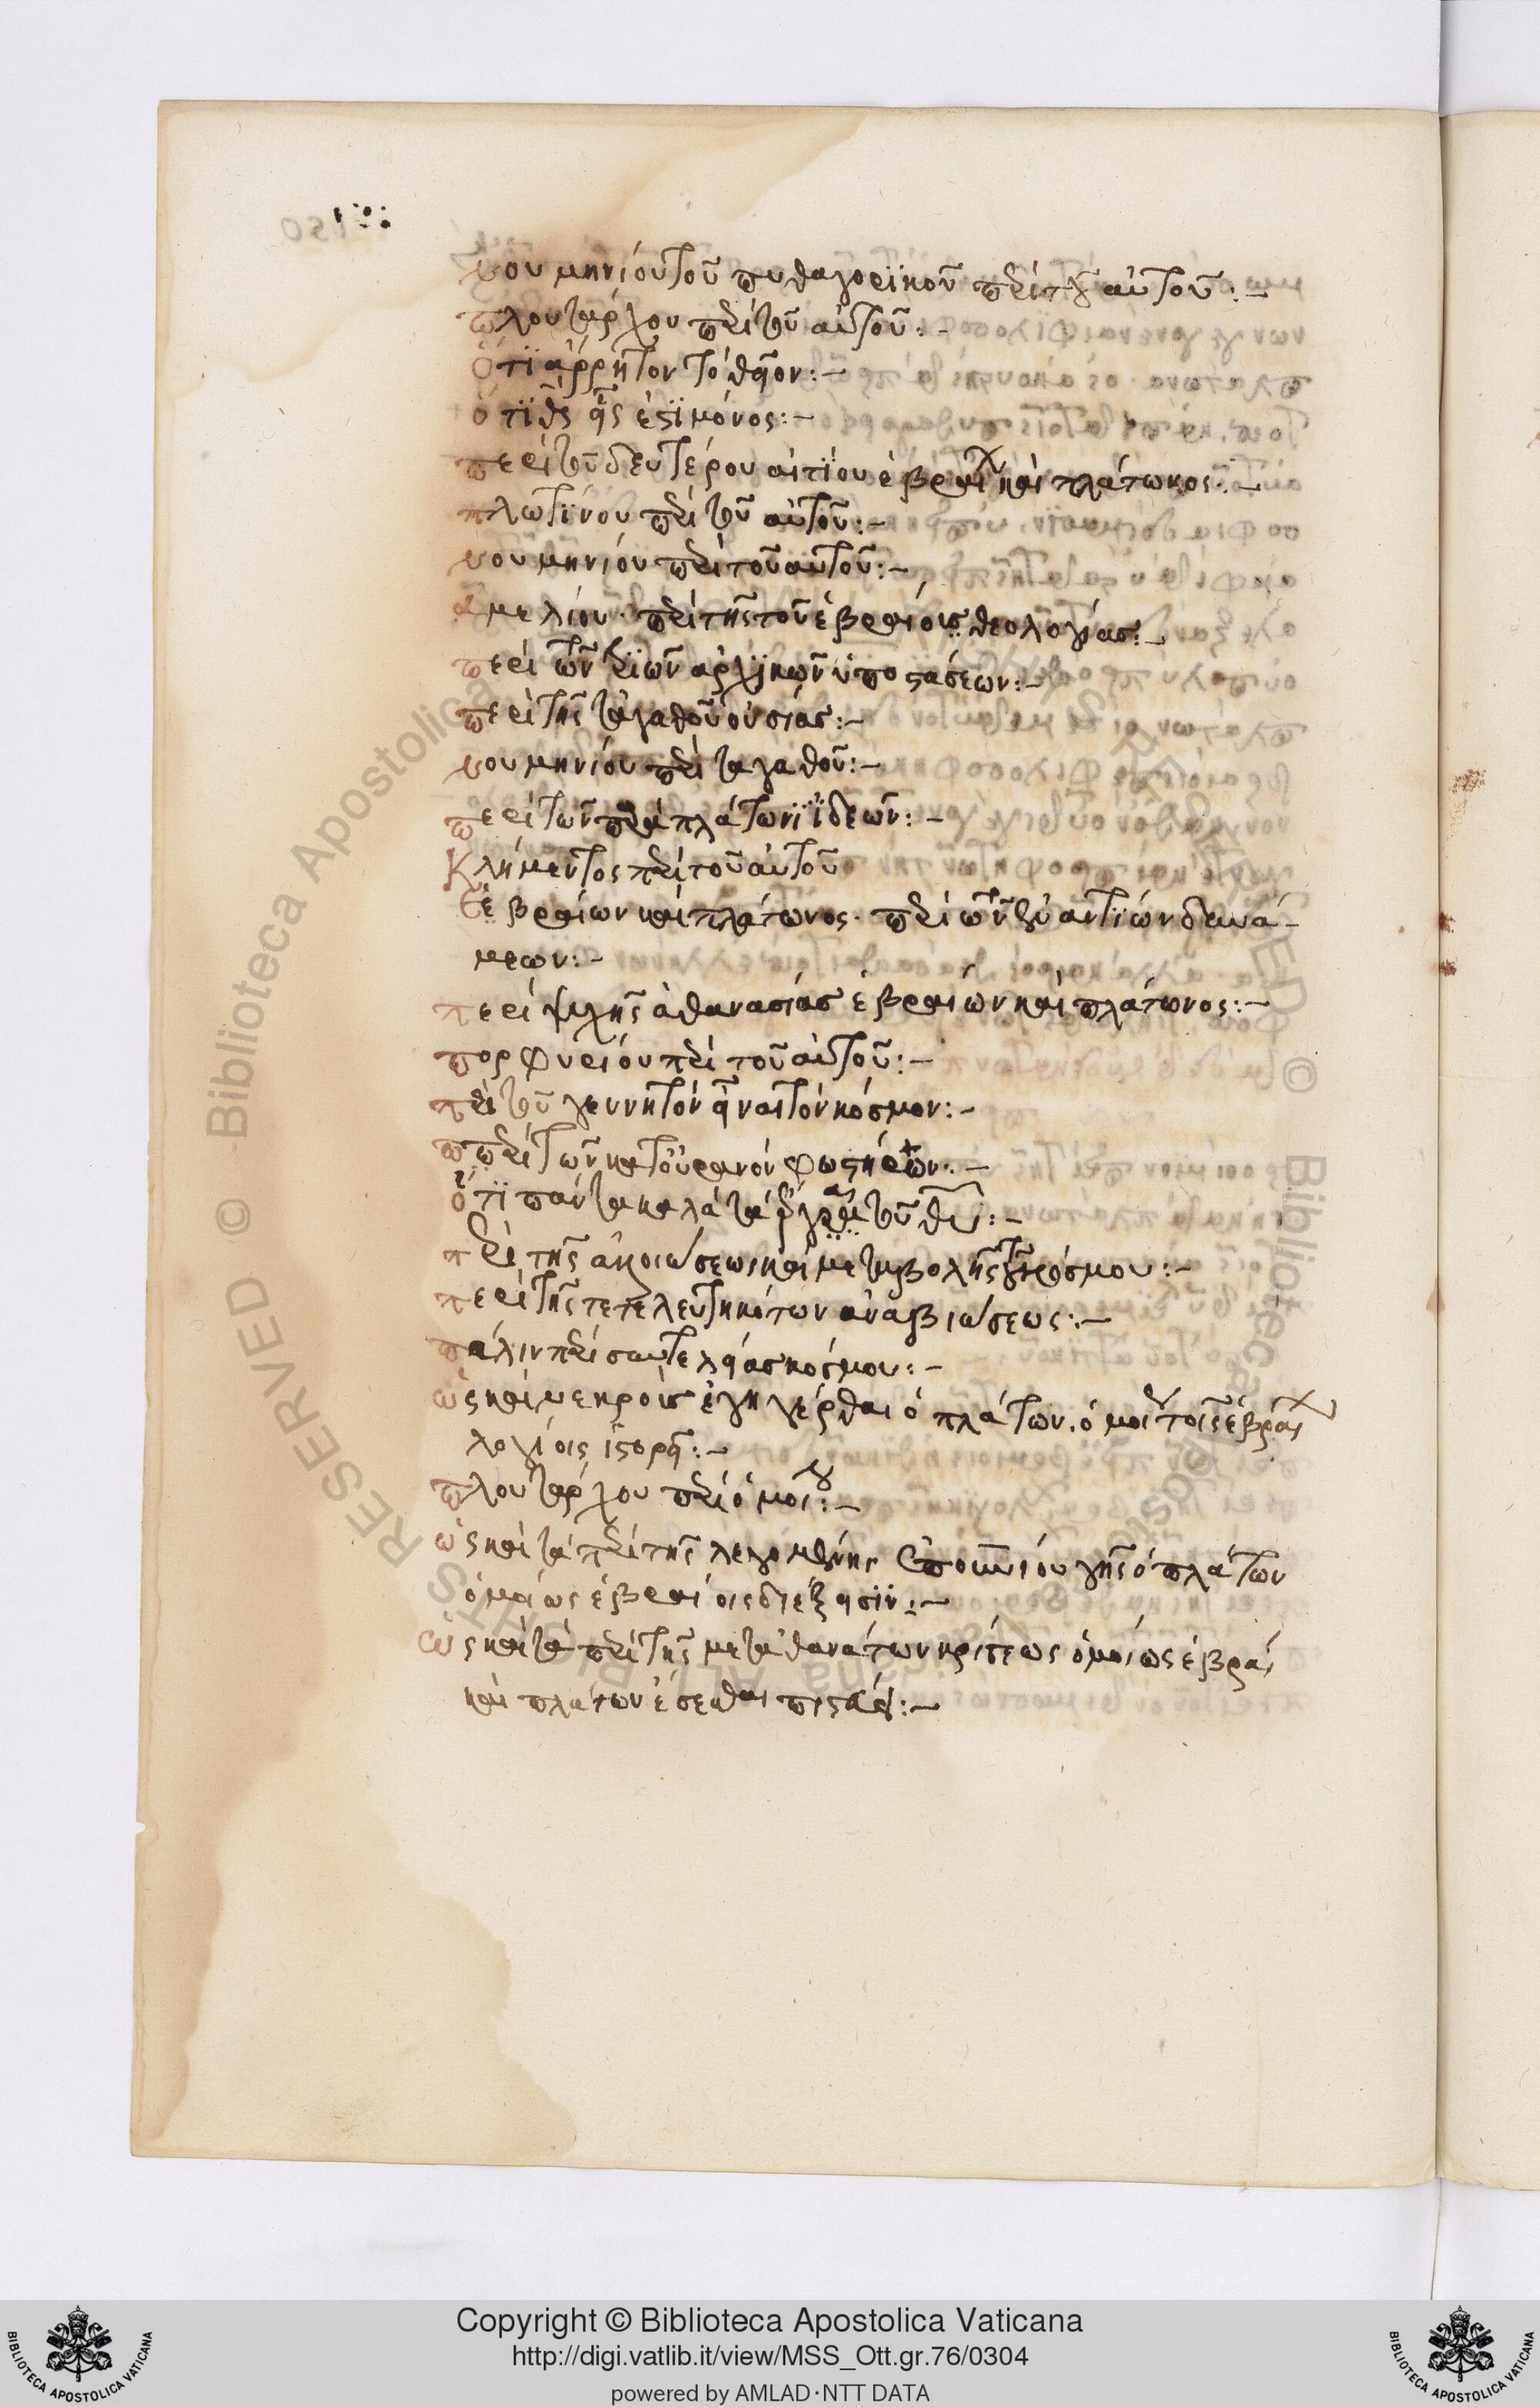 νουμηνίου τοῦ πυθαγορϊκοῦ περὶ τοῦ αὐτοῦ:-
πλουτάρχου περὶ τοῦ αὐτοῦ:-
ὅτϊ ἄρρητον τὸ θεῖον:-
ὅτϊ θς εἷς ἐστϊ μόνος:-
περὶ τοῦ δευτέρου αἰτίου ἑβραί καὶ πλάτωνος:-
πλωτίνου περὶ τοῦ αὐτοῦ:-
νουμηνίου περὶ τοῦ αὐτοῦ:-
ἀμελίου· περὶ τῆς τοῦ ἑβραίοις θεολογίας:-
περὶ τῶν τριῶν ἀρχϊκῶν ὑποστάσεων:-
περὶ τῆς τἀγαθοῦ οὐσίας:-
νουμηνίου περὶ τἀγαθοῦ:-
περὶ τῶν παρὰ πλάτωνϊ ϊδεῶν:-
Κλήμεντος περὶ τοῦ αὐτοῦ
ἑβραίων καὶ πλάτωνος· περὶ τῶν ἐναντίων δυνά-
μεων:-
περὶ ψυχῆς ἀθανασίας ἑβραίων καὶ πλάτωνος:-
πορφυρίου περὶ τοῦ αὐτοῦ:-
περὶ τοῦ γεννητὸν εἶναι τὸν κόσμον:-
περὶ τῶν κατ' οὐρανὸν φωστήρων:-
ὅτϊ πάντα καλὰ τὰ ἔργα τοῦ θυ:-
περὶ τῆς ἀλλοιώσεως καὶ μεταβολῆς τοῦ κόσμου:-
περὶ τῆς τετελευτηκότων ἀναβιώσεως:-
πάλιν περὶ συντελείας κόσμου:-
ὡς καὶ νεκροὺς ἐγηγέρθαι ὁ πλάτων. ὁμοί τοῖς ἑβραί
λογίοις ἱστορεῖ:-
πλουτάρχου περὶ ὁμοίου:-
ὡς καὶ τὰ περὶ τῆς λεγομένης ἐπουρανίου γῆς ὁ πλάτων
ὁμοίως ἑβραίοις διέξεισϊν:-
ὡς καὶ τὰ περὶ τῆς μετὰ θάνατον κρίσεως ὁμοίως ἑβραί
καὶ πλάτων ἔσεσθαι πιστεύει:-
Copyright © Biblioteca Apostolica Vaticana
http://digi.vatlib.it/view/MSS_Ott.gr.76/0304
powered by AMLAD·NTT DATA